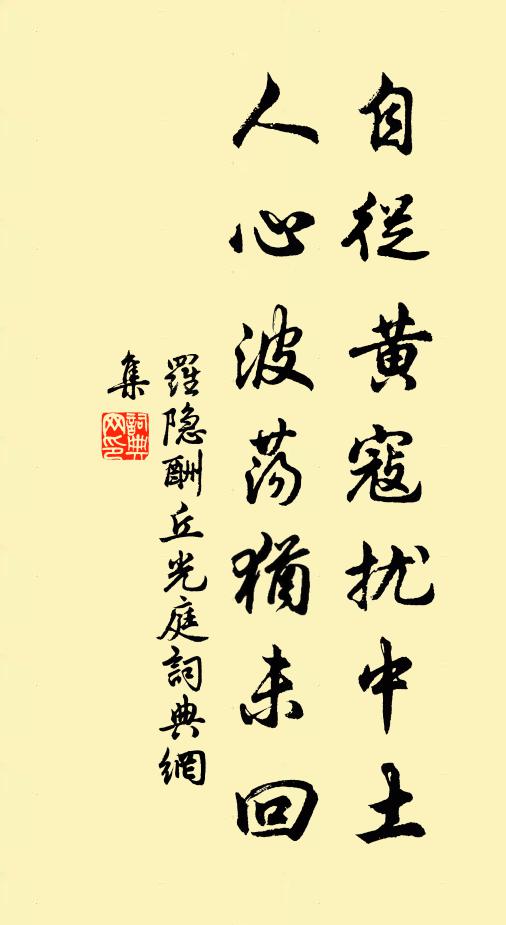 自從黃寇扰中土
人心波荡猶未回
羅隐酬丘光庭詞典網
集
詞典網印